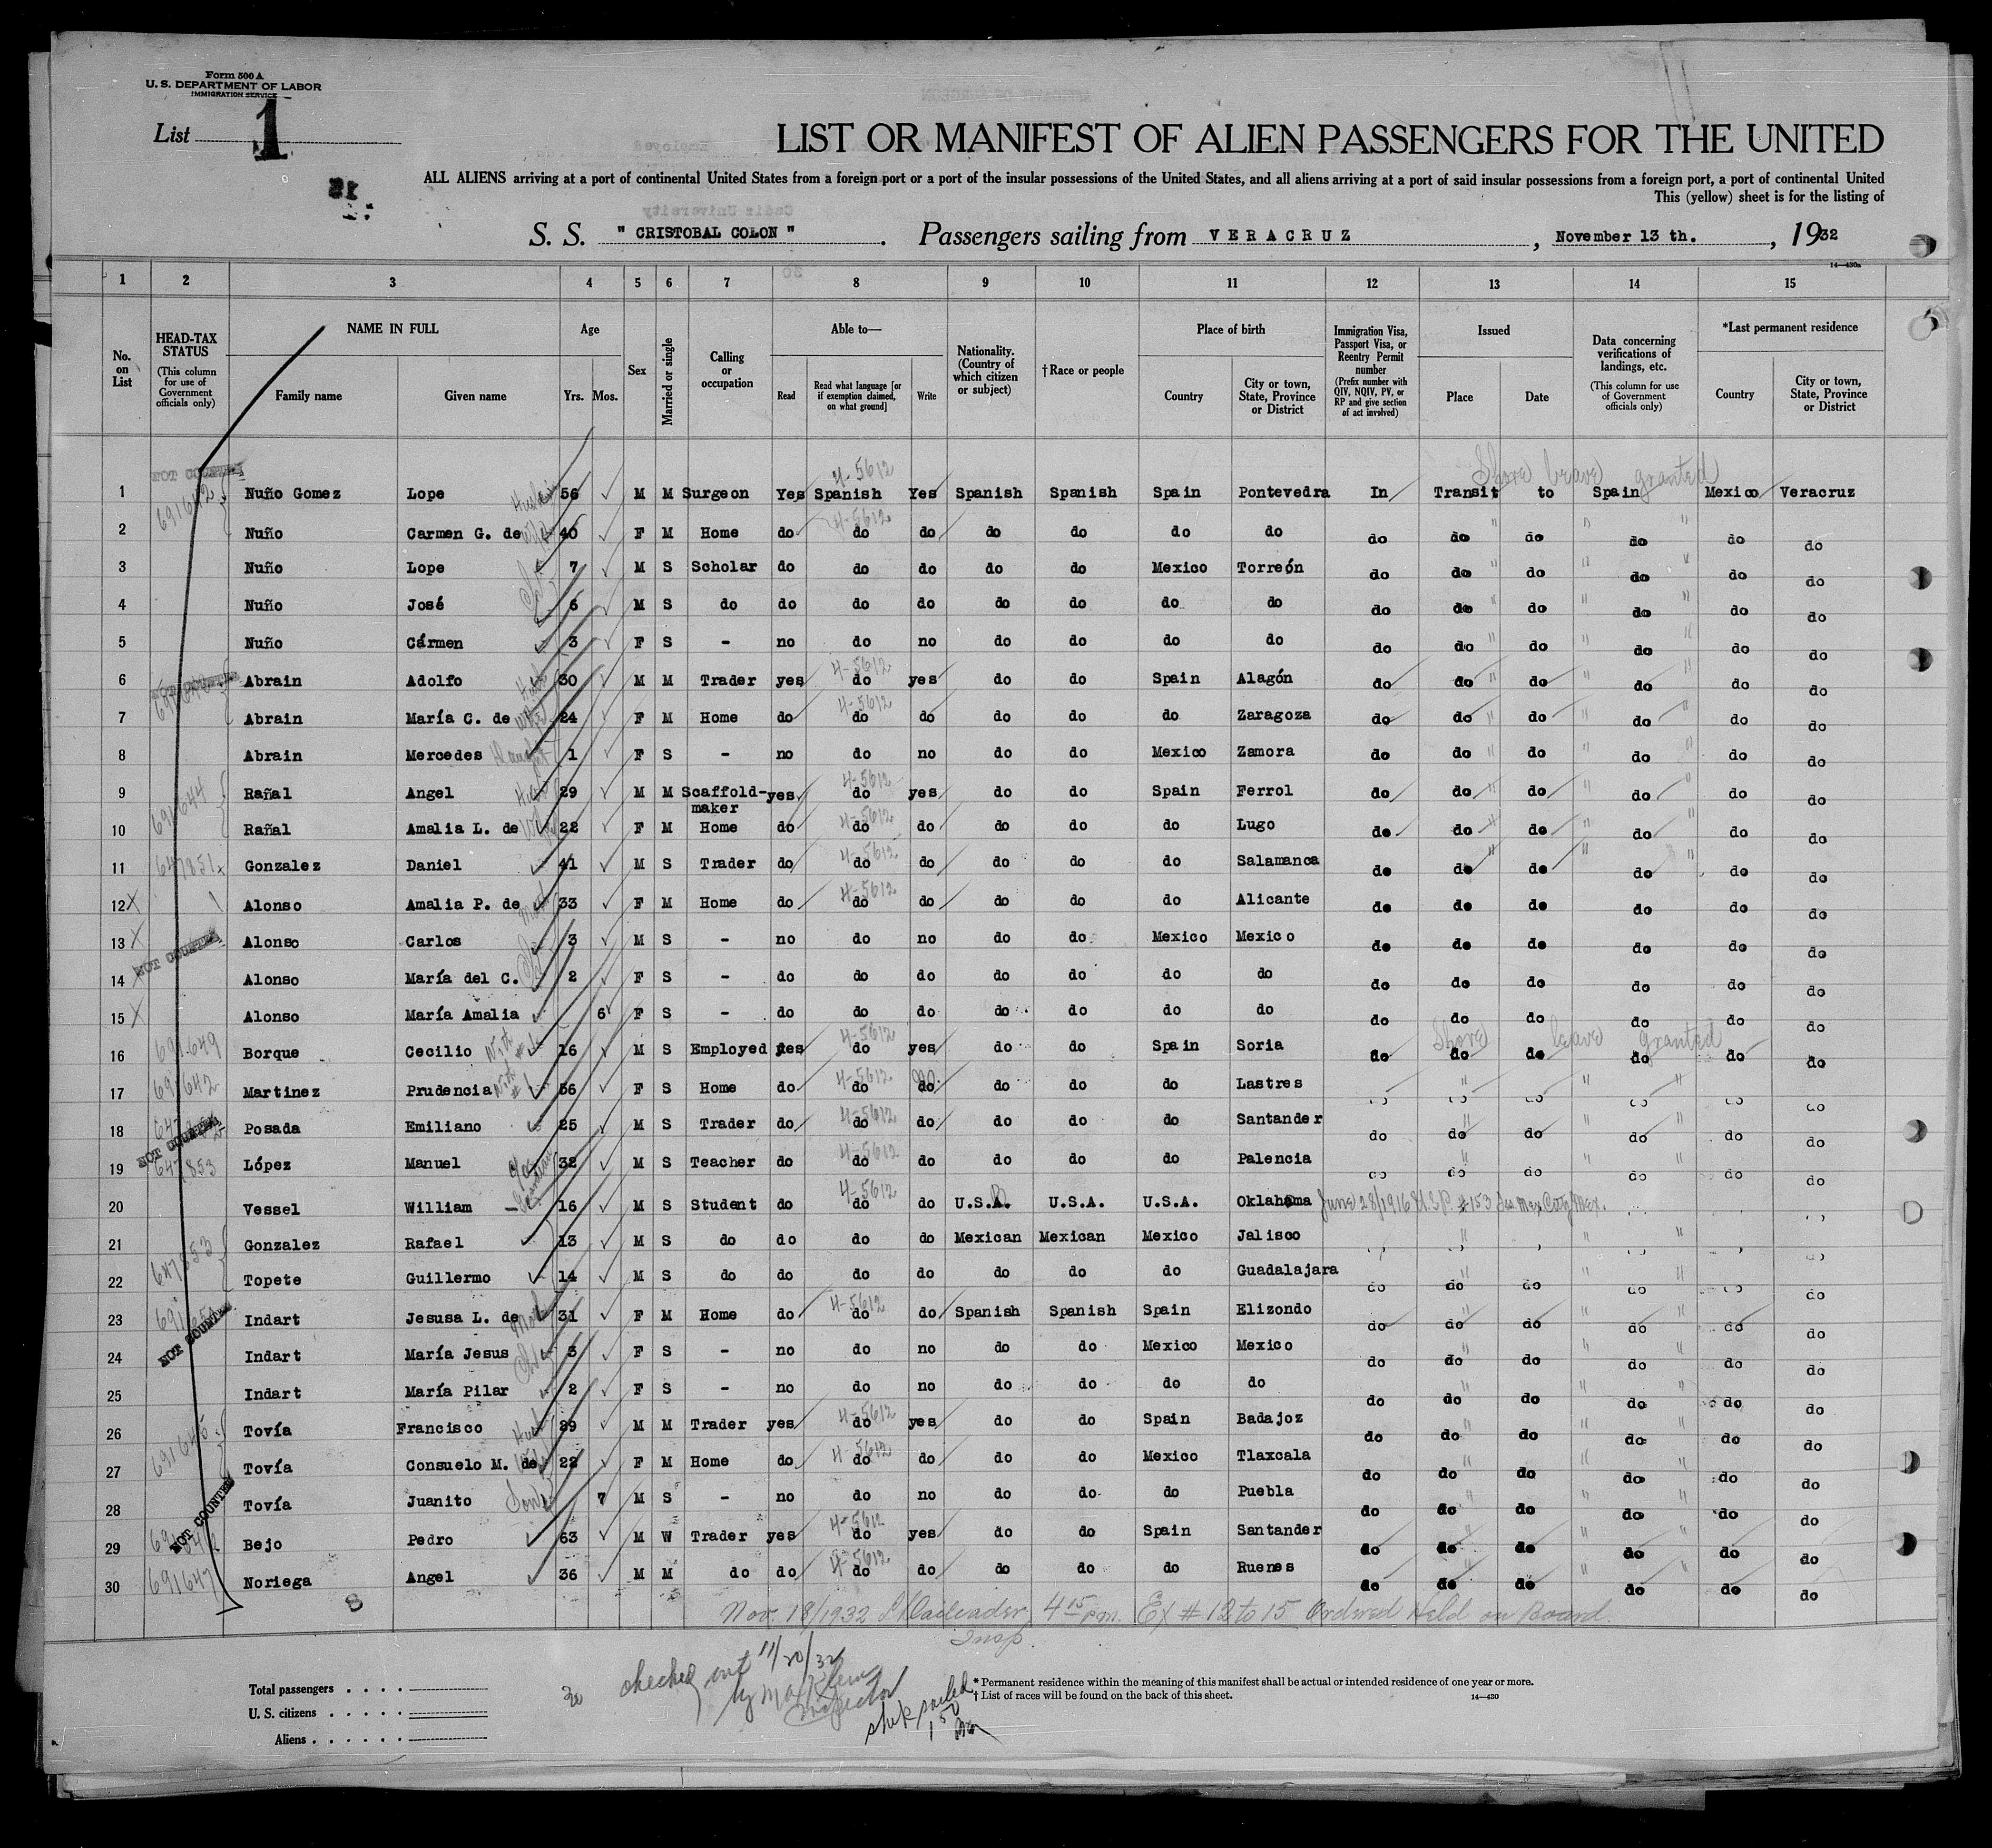 Form 500 A
U. S. DEPARTMENT OF LABOR
IMMIGRATION SERVICE
List 1
LIST OR MANIFEST OF ALIEN PASSENGERS FOR THE UNITED
ALL ALIENS arriving at a port of continental United States from a foreign port or a port of the insular possessions of the United States, and all aliens arriving at a port of said insular possessions from a foreign port, a port of continental United
This (yellow) sheet is for the listing of
S. S. " CRISTOBAL COLON " . Passengers sailing from VERACRUZ , November 13 th. , 1932
14—430a
1 2 3 4 5 6 7 8 9 10 11 12 13 14 15
No. on List
HEAD-TAX STATUS (This column for use of Government officials only)
NAME IN FULL
Family name Given name
Age
Yrs. Mos.
Sex
Married or single
Calling or occupation
Able to—
Read Read what language [or if exemption claimed, on what ground] Write
Nationality. (Country of which citizen or subject)
†Race or people
Place of birth
Country City or town, State, Province or District
Immigration Visa, Passport Visa, or Reentry Permit number (Prefix number with QIV, NQIV, PV, or RP and give section of act involved)
Issued
Place Date
Data concerning verifications of landings, etc. (This column for use of Government officials only)
*Last permanent residence
Country City or town, State, Province or District
NOT COUNTED 4-5612 Shore leave granted
1 691642 Nuño Gomez Lope Husband 56 M M Surgeon Yes Spanish Yes Spanish Spanish Spain Pontevedra In Transit to Spain Mexico Veracruz
2 Nuño Carmen G. de Wife 40 F M Home do 4-5612 do do do do do do do do do do do do
3 Nuño Lope 7 M S Scholar do do do do do Mexico Torreón do do do do do do
4 Nuño José 6 M S do do do do do do do do do do do do do do
5 Nuño Cármen 3 F S - no do no do do do do do do do do do do
6 NOT COUNTED Abrain Adolfo Husb 30 M M Trader yes 4-5612 do yes do do Spain Alagón do do do do do do
7 Abrain María C. de Wife 24 F M Home do 4-5612 do do do do do Zaragoza do do do do do do
8 Abrain Mercedes Daught 1 F S - no do no do do Mexico Zamora do do do do do do
9 691644 Rañal Angel Husb 29 M M Scaffold-maker yes 4-5612 do yes do do Spain Ferrol do do do do do do
10 Rañal Amalia L. de Wife 22 F M Home do 4-5612 do do do do do Lugo do do do do do do
11 647851 Gonzalez Daniel 41 M S Trader do 4-5612 do do do do do Salamanca do do do do do do
12 X Alonso Amalia P. de Moth 33 F M Home do 4-5612 do do do do do Alicante do do do do do do
13 X Alonso Carlos 3 M S - no do no do do Mexico Mexico do do do do do do
NOT COUNTED
14 X Alonso María del C. 2 F S - do do do do do do do do do do do do do
15 X Alonso María Amalia 6 F S - do do do do do do do do do do do do do
Shore leave granted
16 691649 Borque Cecilio 16 M S Employed yes 4-5612 do yes do do Spain Soria do do do do do do
17 691642 Martinez Prudencia With #1 56 F S Home do 4-5612 do do do do do Lastres do
18 Posada Emiliano 25 M S Trader do 4-5612 do do do do do Santander do do do do do do
NOT COUNTED
19 647853 López Manuel 32 M S Teacher do 4-5612 do do do do do Palencia do do do do do do
20 Vessel William 16 M S Student do 4-5612 do do U.S.A. U.S.A. U.S.A. Oklahoma June 28/1916 U.S.P. #153 iss Mex City Mex.
21 647853 Gonzalez Rafael 13 M S do do do do Mexican Mexican Mexico Jalisco
22 Topete Guillermo 14 M S do do do do do do do Guadalajara do do do do do do
23 NOT COUNTED Indart Jesusa L. de Moth 31 F M Home do 4-5612 do do Spanish Spanish Spain Elizondo do do do do do do
24 Indart María Jesus 3 F S - no do no do do Mexico Mexico do do do do do do
25 Indart María Pilar 2 F S - no do no do do do do do do do do do do
26 Tovía Francisco Husb 29 M M Trader yes 4-5612 do yes do do Spain Badajoz do do do do do do
27 Tovía Consuelo M. de Wife 22 F M Home do 4-5612 do do do do Mexico Tlaxcala do do do do do do
28 NOT COUNTED Tovía Juanito Son 7 M S - no do no do do do Puebla do do do do do do
29 Bejo Pedro 63 M W Trader yes 4-5612 do yes do do Spain Santander do do do do do do
30 691647 Noriega Angel 36 M M do do 4-5612 do do do do do Ruenes do do do do do do
8 Nov. 18/1932 4 15 p.m. Ex #12 to 15 Ordered Held on Board.
Insp.
checked out 11/20/32
by
Inspector
ship sailed
1 50
Total passengers
U. S. citizens
Aliens
30
* Permanent residence within the meaning of this manifest shall be actual or intended residence of one year or more.
† List of races will be found on the back of this sheet.
14—430